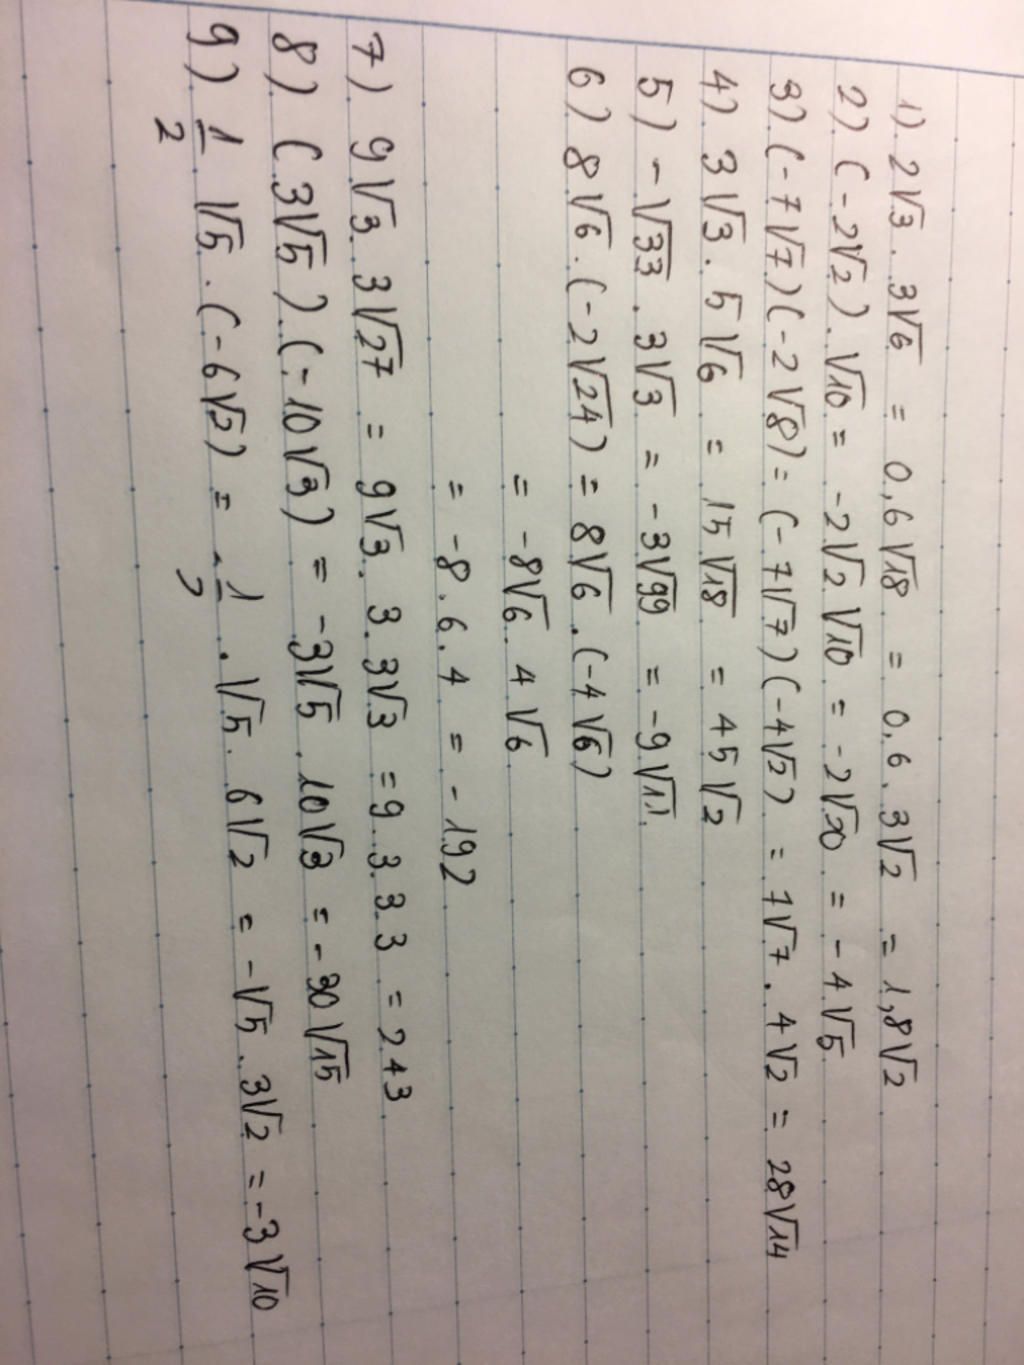 1) 2√3 . 3√6 = 0,6√18 = 0,6 . 3√2 = 1,8√2
2) (-2√2) . √10 = -2√2 √10 = -2√20 = -4√5
3) (-7√7)(-2√8) = (-7√7)(-4√2) = 7√7 . 4√2 = 28√14
4) 3√3 . 5√6 = 15√18 = 45√2
5) -√33 . 3√3 = -3√99 = -9√11
6) 8√6 . (-2√24) = 8√6 . (-4√6)
= -8√6 . 4√6
= -8 . 6 . 4 = -192
7) 9√3 . 3√27 = 9√3 . 3 . 3√3 = 9 . 3 . 3 . 3 = 243
8) (3√5) (-10√3) = -3√5 . 10√3 = -30√15
9) 1/2 √5 . (-6√2) = -1/2 . √5 . 6√2 = -√5 . 3√2 = -3√10